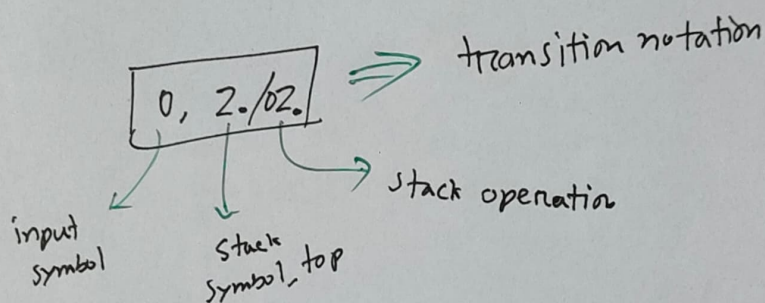 0, Z₀/0Z₀
transition notation
stack operation
input
symbol
stack
symbol_top